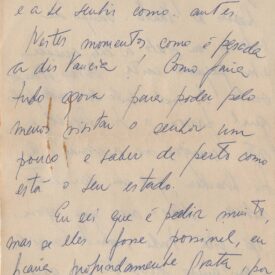 e a se sentir como antes.
Nestes momentos como é pesada
a distancia! Como faria
tudo agora para poder pelo
menos visitar o senhor um
pouco e saber de perto como
está o seu estado.
Eu sei que é pedir muito,
mas se lles fosse possivel, eu
ficaria profundamente grata, por